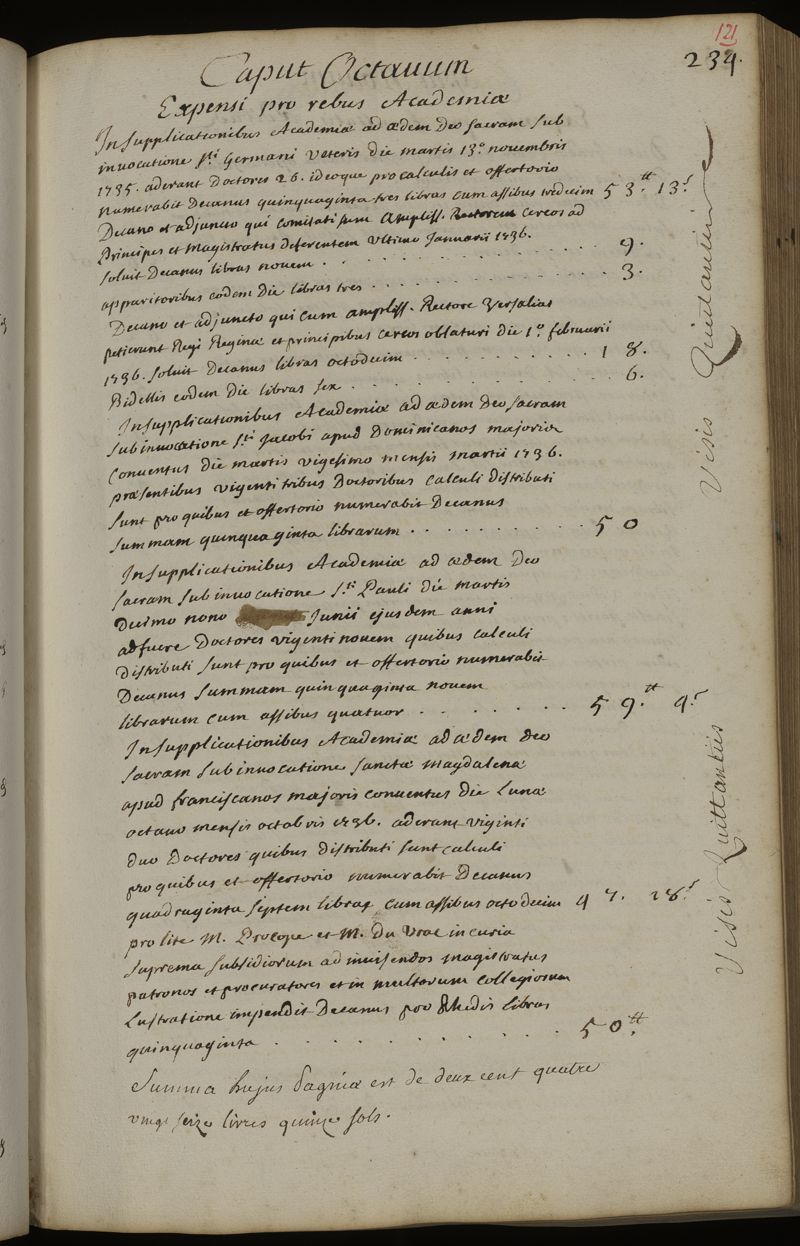 121
234.
Caput Octauum
Expensi pro rebus Academiæ
In supplicationibus Academiæ ad ædem Deo sacram sub
inuocatione s.ti Germani Veteris die martis 13.º novembris
1735. aderant Doctores 26. ideoque pro calculis et offertorio
numerabit Decanus quinquaginta tres libras cum assibus tredecim 53.tt 13.s
Decano et adjuncto qui comitati sunt Ampliss. Rectorem cereos ad
Principes et Magistratus deferentem ultimo Januarii 1736.
soluit Decanus libras novem . . . . . . . . 9.
apparitoribus eodem die libras tres . . . . . . . . 3.
Decano et adjuncto qui cum ampliss. Rectore Versalias
petierunt Regi Reginæ et principibus cereos oblaturi die 1.º februarii
1736. soluit Decanus libras octodecim . . . . . . . . 18.
Bidellis eodem die libras sex . . . . . . . . 6.
In supplicationibus Academiæ ad ædem Deo sacram
sub inuocatione s.ti Jacobi apud Dominicanos majoris
conventus die martis vigesimo mensis martii 1736.
præsentibus vigenti tribus Doctoribus calculi distributi
sunt pro quibus et offertorio numerabit Decanus
summam quinquaginta librarum . . . . . . . . 50
In supplicationibus Academiæ ad ædem Deo
sacram sub inuocatione s.ti Pauli die martis
decimo nono Junii ejusdem anni
adfuere Doctores vigenti novem quibus calculi
distributi sunt pro quibus et offertorio numerabit
Decanus summam quinquaginta novem
librarum cum assibus quatuor . . . . . . . . 59.tt 4.s
In supplicationibus Academiæ ad ædem deo
sacram sub inuocatione sanctæ Magdalenæ
apud franciscanos majoris conventus die Lunæ
octavo mensis octobris 1736. aderant viginti
duo Doctores quibus distributi sunt calculi
pro quibus et offertorio numerabit Decanus
quadraginta septem libras cum assibus octodecim 47. 18.s
pro lite M. Procope et M. Du Vrac in curia
suprema subsidiorum ad invisendos magistratus
patronos et procuratores et in multorum collegiorum
Lustratione impendit Decanus pro Rhedis libras
quinquaginta . . . . . . . . 50.tt
Summa hujus Paginæ est de deux cent quatre
vingt seize livres quinze sols.
Visis Quittantiis
Visis Quittantiis